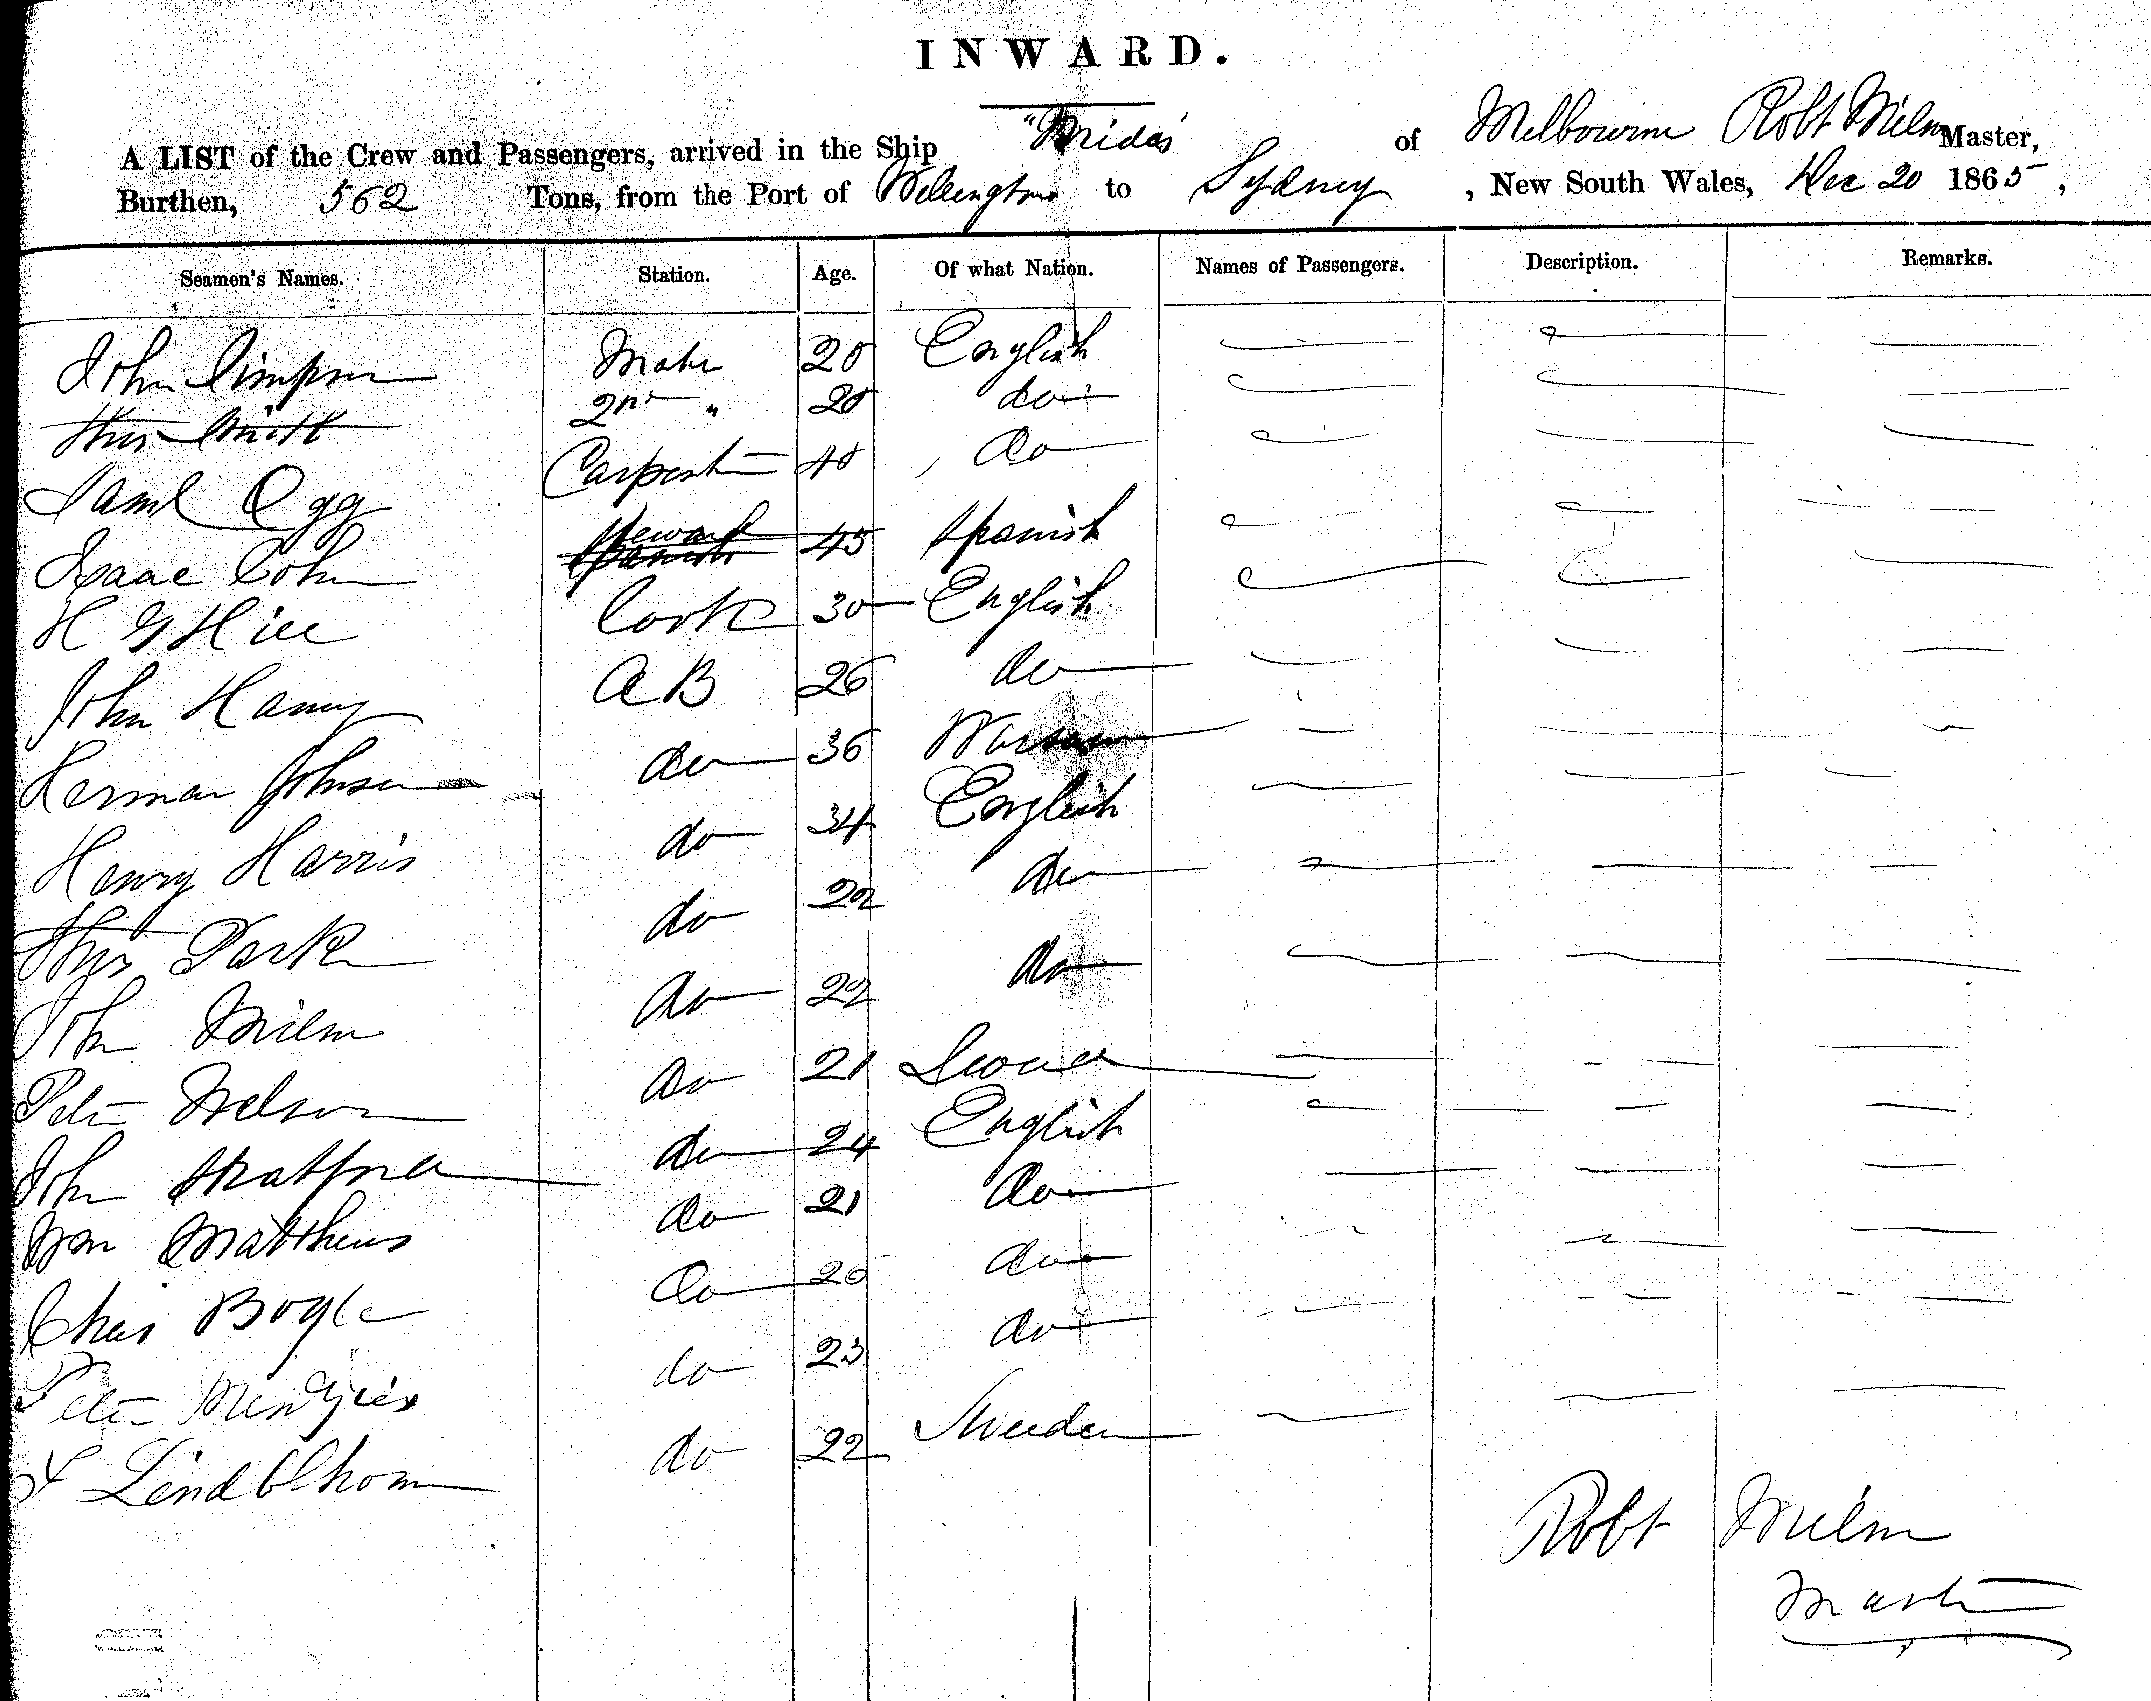 INWARD.
A LIST of the Crew and Passengers, arrived in the Ship "Midas" of Melbourne Robt Miln Master,
Burthen, 562 Tons, from the Port of Wellington to Sydney, New South Wales, Dec 20 1865,
Seamen's Names. Station. Age. Of what Nation. Names of Passengers. Description. Remarks.
John Simpson Mate 20 English
Thos Smith 2nd " 20 do
Saml Ogg Carpenter 40 do
Isaac Cohn Steward 45 Spanish
H G Hill Cook 30 English
John Hanny A B 26 do
Herman Johnson do 36
Henry Harris do 34 English
Thos Park do 22 do
John Miln do 22 do
Peter Nelson do 21
John Stratford do 24 English
Wm Matthews do 21 do
Chas Bogle do 20 do
Peter Menzies do 23 do
Lindblhom do 22 Sweden
Robt Miln
Master